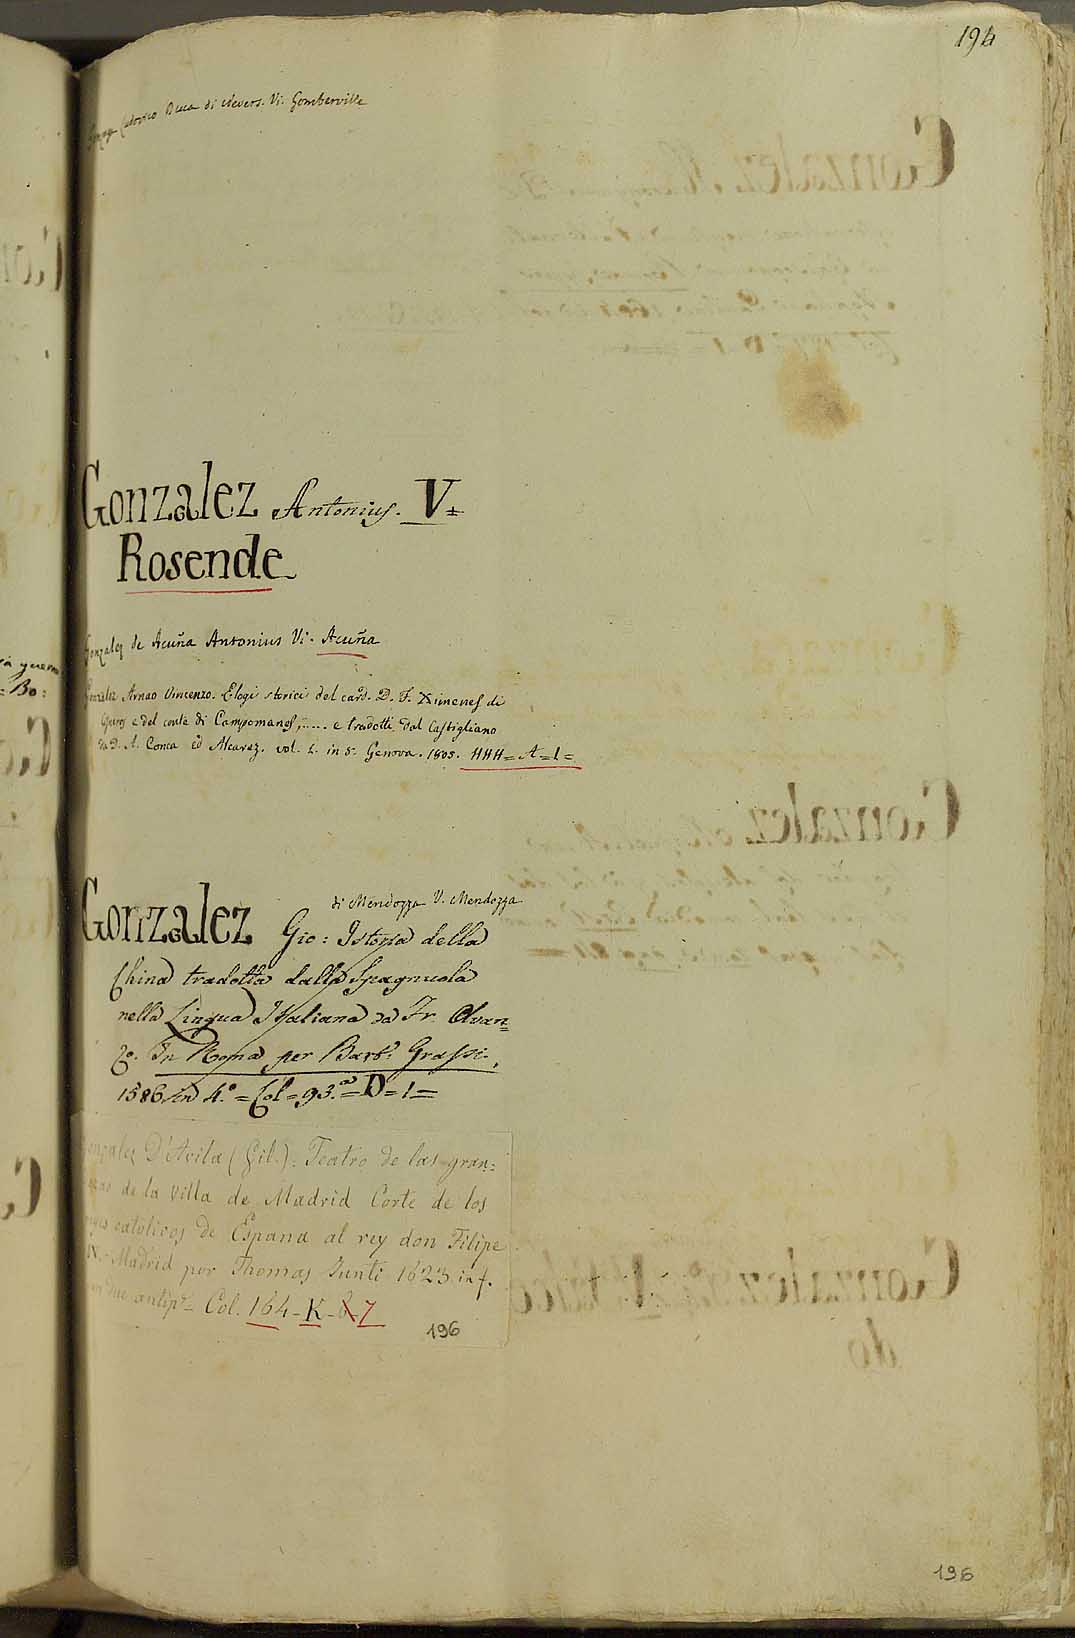 194
Ludovico Duca di Nevers. Vi. Gomberville
Gonzalez Antonius. V=
Rosende
Gonzalez de Acuña Antonius Vi. Acuña
Gonzalez Arnao Vincenzo. Elogi storici del card. D. F. Ximenes di
e del conte di Campomanes, .... e tradotti dal Castigliano
da D. A. Conca ed Alcarez. vol. 1. in 8. Genova. 1805. HHH= A=1=
di Mendozza V. Mendozza
Gonzalez Gio: Istoria della
China tradotta dalla Spagnuola
nella Lingua Italiana da Fr. Avan=
zo. In Roma per Bart. Grassi.
1586 in 4.º = Col = 93.ª = D = 1 =
Gonzalez D'Avila (Gil.). Teatro de las gran=
de la Villa de Madrid Corte de los
catolicos de Espana al rey don Filipe
IV. Madrid por Thomas Junti 1623. in f.
antip. Col. 164 - K - 7
196
196